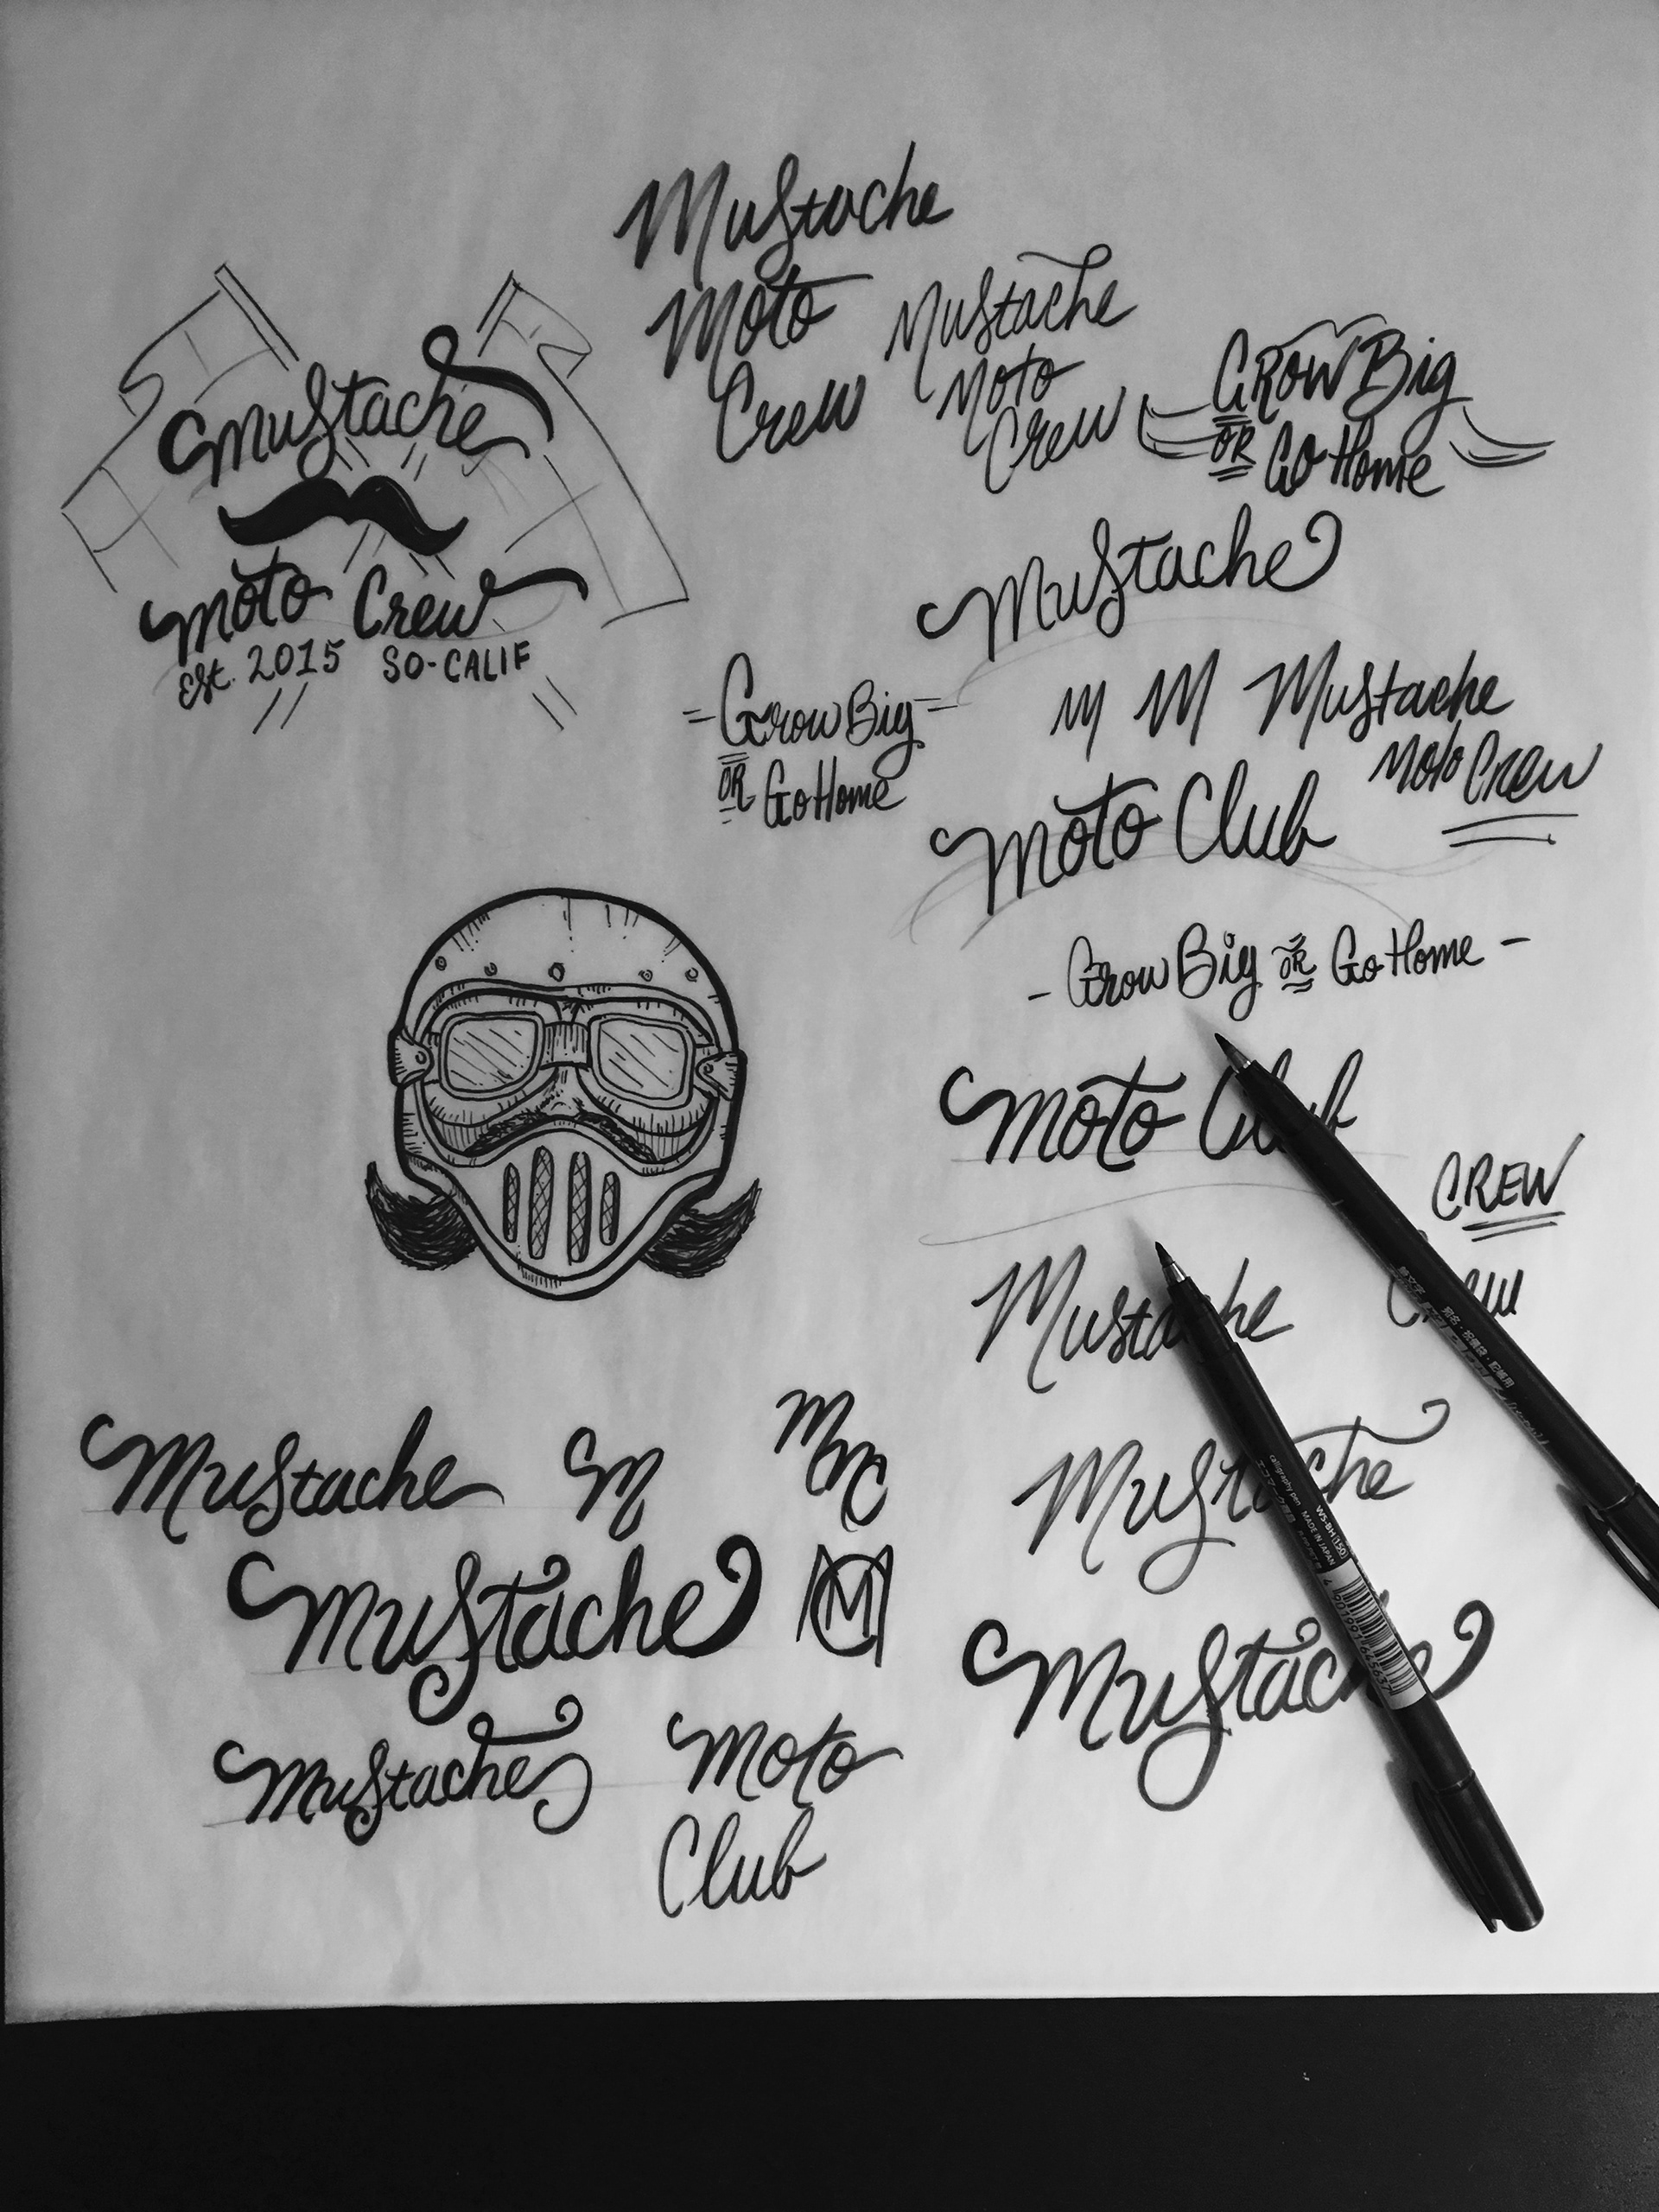 Mustache
Moto
Crew
Mustache
Moto
Crew
GROW Big
OR
GO Home
Mustache
Moto Crew
Est. 2015 SO-CALIF
Mustache
M M Mustache
Moto Crew
Grow Big
OR
Go Home
Moto Club
- Grow Big OR Go Home -
Moto Club
CREW
Mustache
Crew
Mustache
M
MMC
Mustache
Mustache
M
Mustache
Mustache
Moto
Club
calligraphy pen MADE IN JAPAN
WS-BH(150)
4901991645637